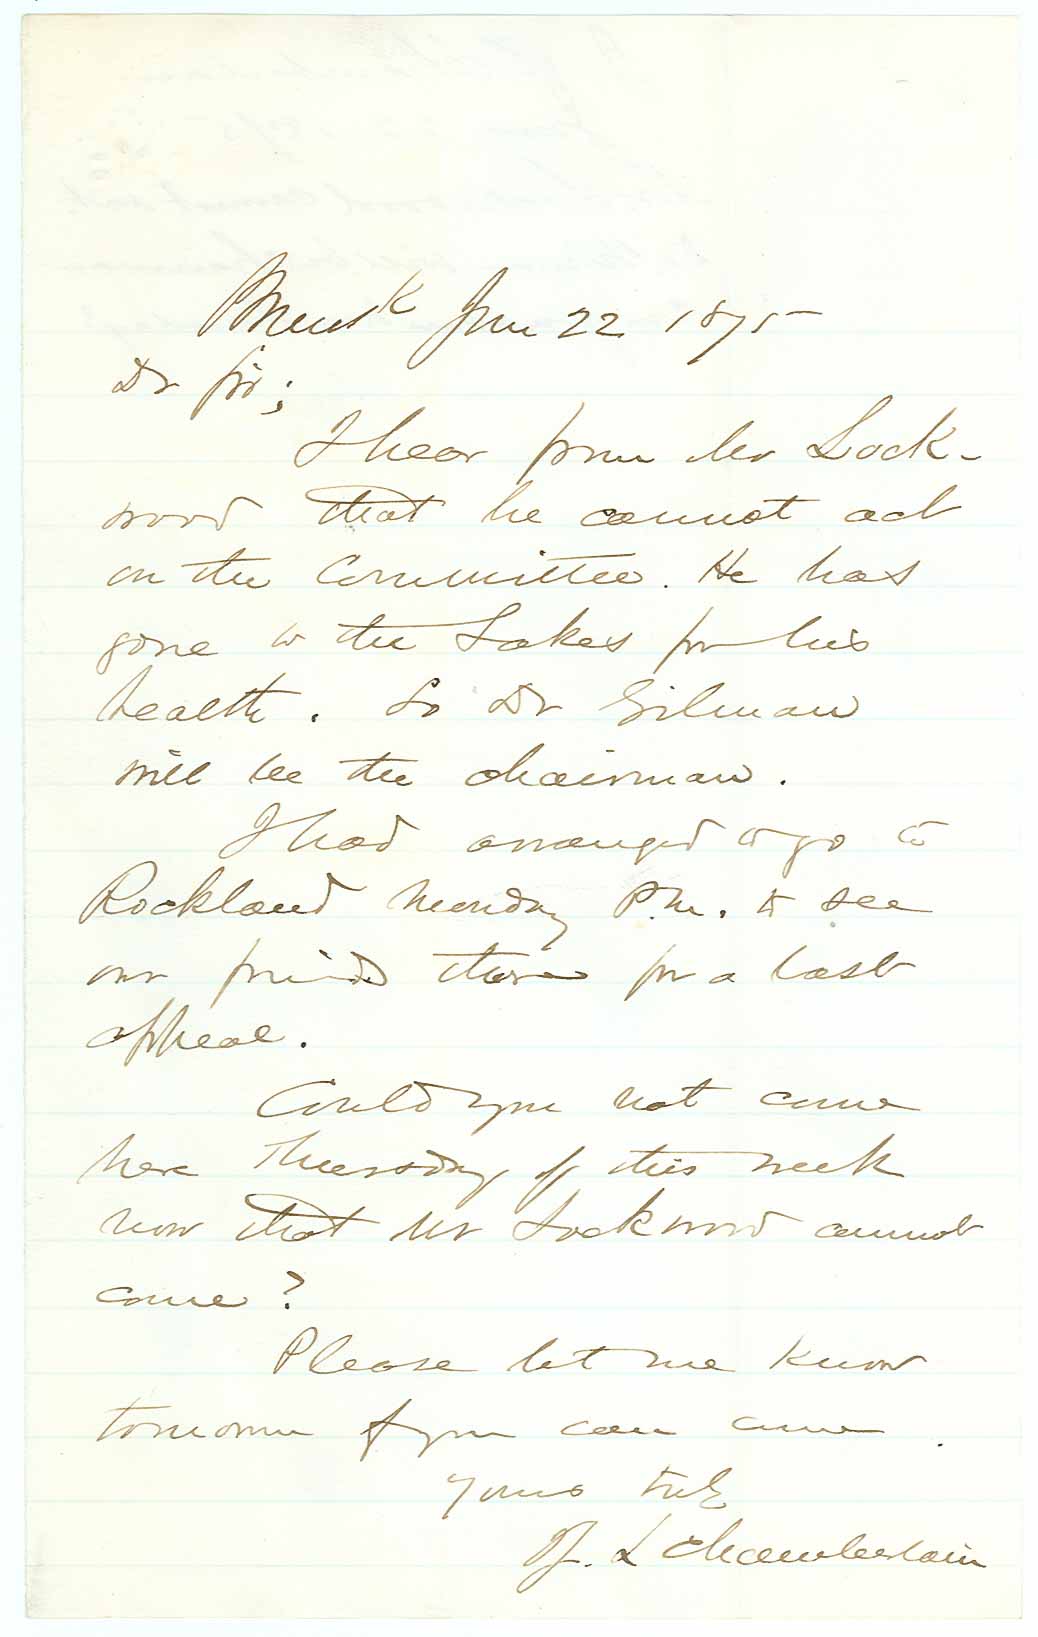 Brunsk Jun 22 1875
Dr Sir;
I hear from Mr Lock-
wood that he cannot act
on the Committee. He has
gone to the Lakes for his
health. So Dr Gilman
will be the chairman.
I had arranged to go to
Rockland Monday P.M. to see
our friends there for a last
appeal.
Could you not come
here Thursday of this week
now that Mr Lockwood cannot
come?
Please let me know
tomorrow if you can come.
Yours truly
J. L Chamberlain